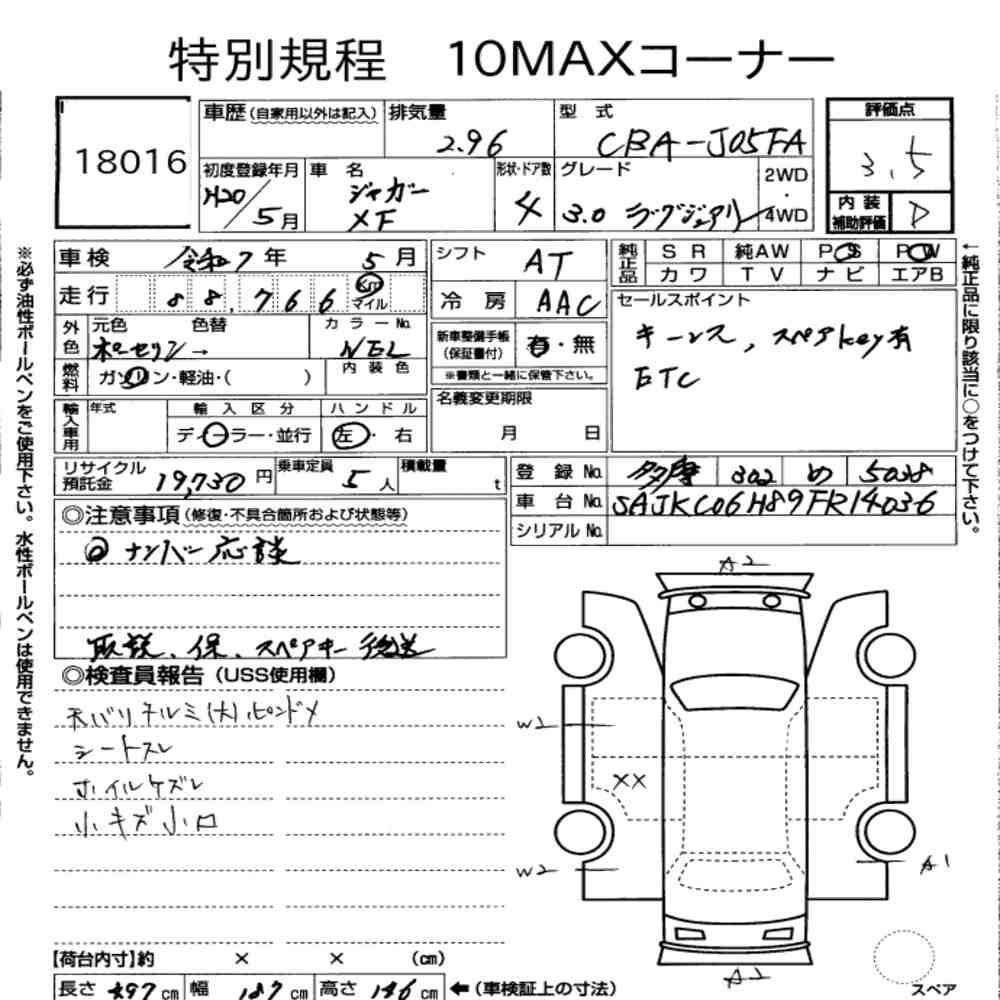 特別規程 10MAXコーナー
18016
車歴(自家用以外は記入)
排気量
2.96
型 式
CBA-J05FA
評価点
3.5
初度登録年月
H20/5月
車 名
ジャガー
XF
形状・ドア数
4
グレード
3.0 ラグジュアリー
2WD
・
4WD
内 装
補助評価
D
車検
令和7年 5月
走行
88,766
Km
マイル
シフト
AT
冷 房
AAC
純正品
S R
純AW
P S
P W
カ ワ
T V
ナ ビ
エアB
セールスポイント
キーレス, スペアkey有
ETC
外色
元色
色替
ポーセリン→
カラーNo.
NEL
燃料
ガソリン・軽油・( )
内 装 色
新車整備手帳
(保証書付)
有・無
※書類と一緒に保管下さい。
名義変更期限
月 日
輸入車用
年式
輸 入 区 分
ディーラー・並行
ハ ン ド ル
左・右
リサイクル
預託金
19,730円
乗車定員
5人
積載量
t
登 録 No.
多摩 302 め 5038
車 台 No.
SAJKC06H89FR14036
シリアル No.
◎注意事項(修復・不具合箇所および状態等)
ナンバー応談
取説、保、スペアキー後送
◎検査員報告(USS使用欄)
天バリヌルミ(大)ピンドメ
シートスレ
ホイルケズレ
小キズ小凹
A2
W1
XX
W2
A1
A2
【荷台内寸】約 × × (cm)
長さ 497cm
幅 187cm
高さ 146cm
←(車検証上の寸法)
スペア
※必ず油性ボールペンをご使用下さい。水性ボールペンは使用できません。
←純正品に限り該当に○をつけて下さい。